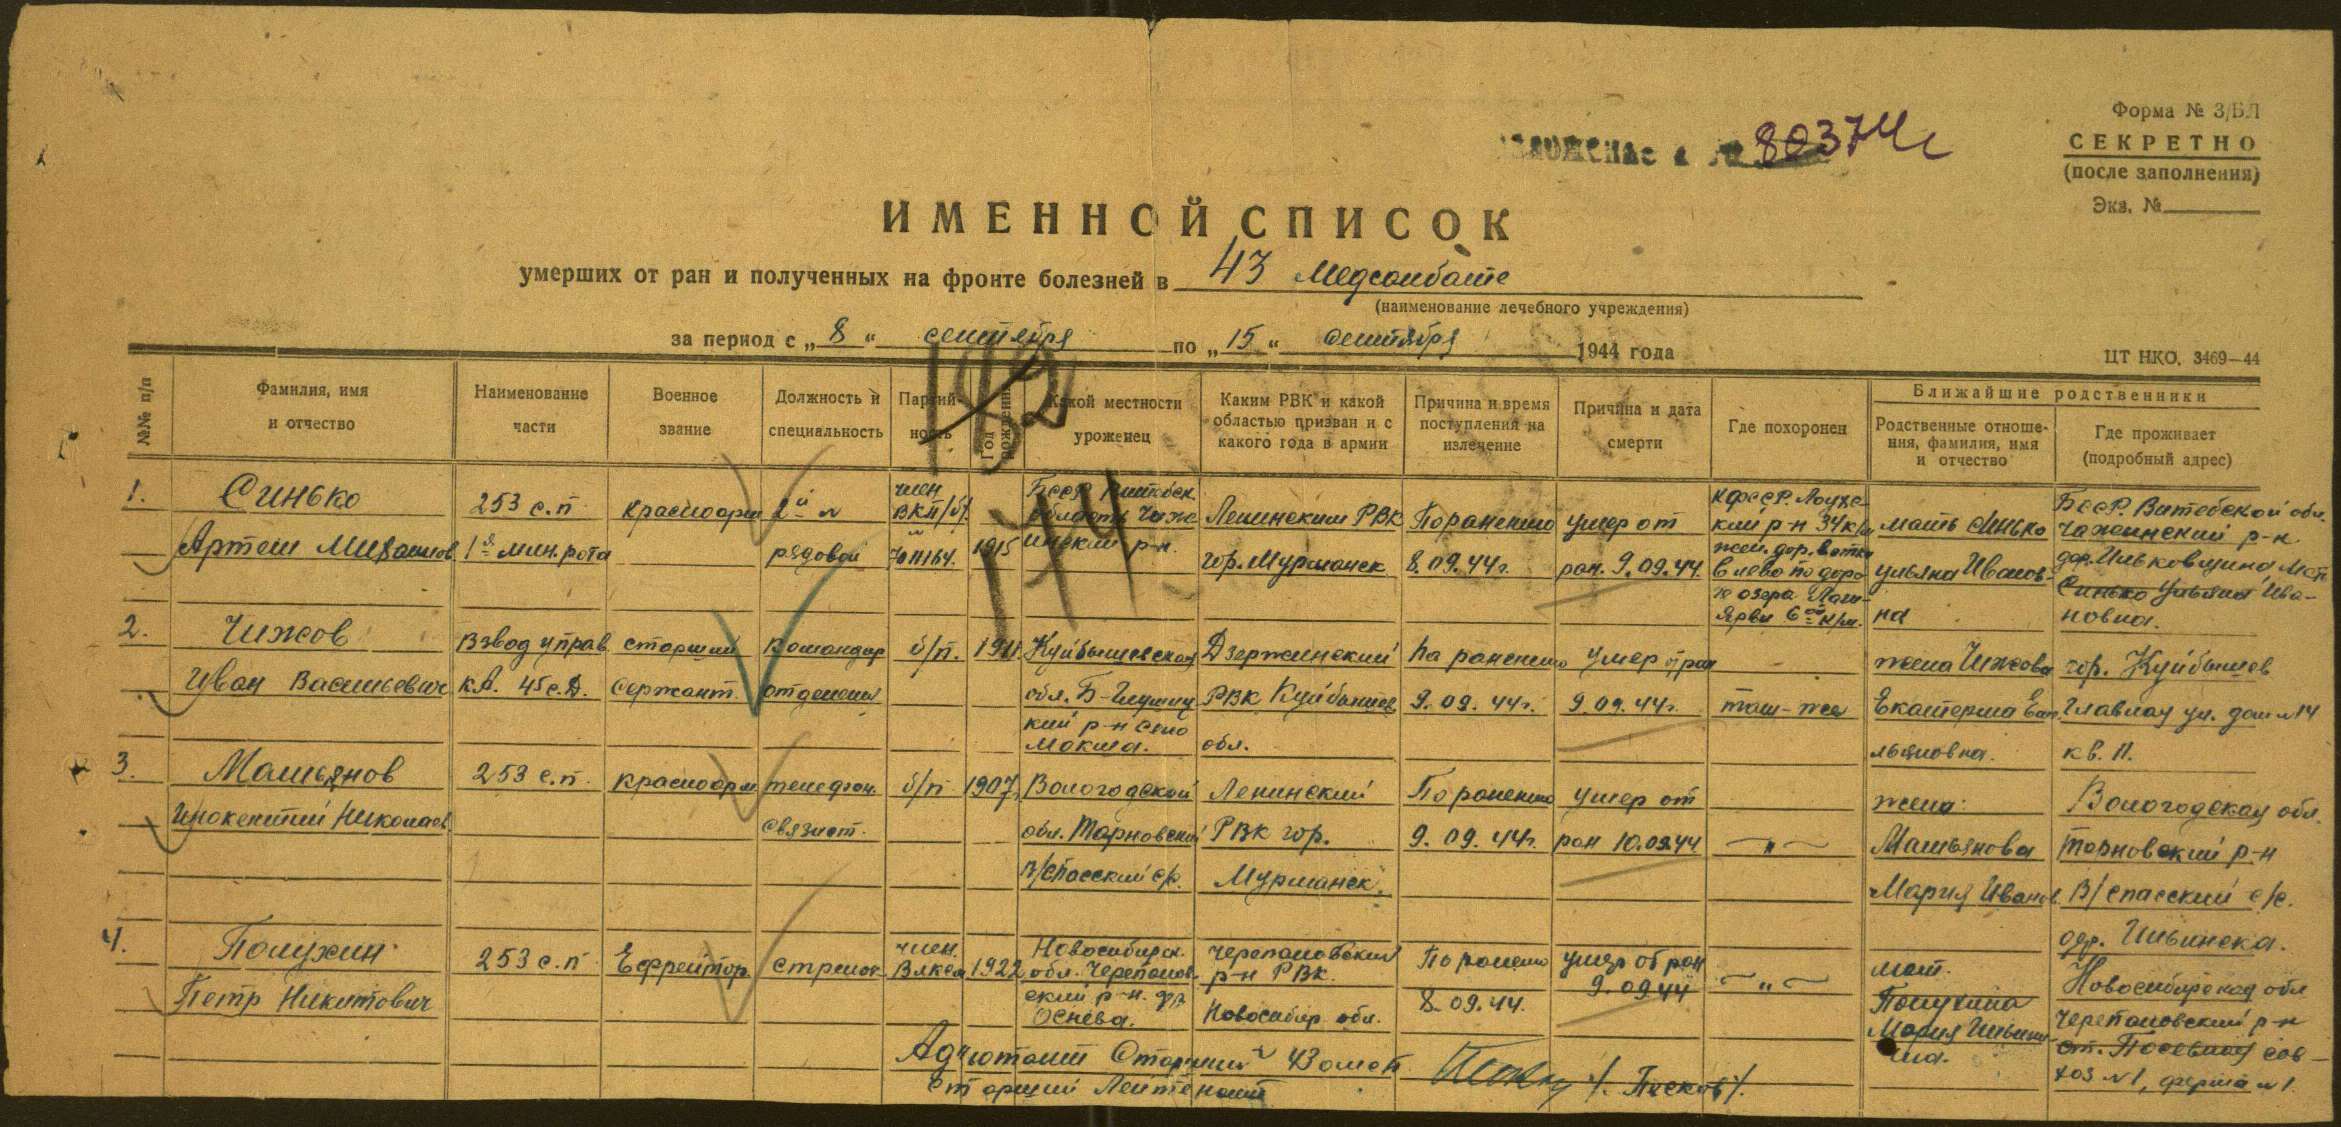 Форма № 3/БЛ
СЕКРЕТНО
(после заполнения)
Экз. №
80374с
ИМЕННОЙ СПИСОК
умерших от ран и полученных на фронте болезней в 43 Медсанбате
(наименование лечебного учреждения)
за период с „ 8 “ сентября по „ 15 “ сентября 1944 года
ЦТ НКО. 3469—44
№№ п/п
Фамилия, имя и отчество
Наименование части
Военное звание
Должность и специальность
Партийность
Год рождения
Какой местности уроженец
Каким РВК и какой областью призван и с какого года в армии
Причина и время поступления на излечение
Причина и дата смерти
Где похоронен
Ближайшие родственники
Родственные отношения, фамилия, имя и отчество
Где проживает (подробный адрес)
142
174
1. Синько
Артем Михайлов
253 с.п.
1я мин. рота
красноарм
2й №
рядовой
член
ВКП/б/.
1915
БССР Витебск
область Чаж
инский р-н.
Ленинским РВК
гор. Мурманск
По ранению
8.09.44г.
умер от
ран. 9.09.44.
КФССР. Лоухс-
кий р-н 34 км
жел. дор. ветки
влево по доро
6 км.
мать Синько
ульяна Иванов-
на
БССР. Витебской обл.
чажинский р-н.
Синько Ульяна Ива-
новна.
2. Чижов
Иван Васильевич
Взвод управ
к.А. 45 с.Д.
старший
сержант.
Командир
отделения
б/п.
1911
Куйбышевская
обл. Б-Глушиц
кий р-н село
Мокша.
Дзержинский
РВК Куйбышев
обл.
По ранению
9.09.44г.
умер от ран
9.09.44г.
там-же
жена Чижова
Екатерина Еме
льяновна.
гор. Куйбышев
Главная ул. дом №14
кв. 11.
3. Мамьянов
Инокентий Николаев
253 с.п.
красноарм
телефон.
связист.
б/п
1907
Вологодской
обл. Тарновский
В/Спасский с/с.
Ленинский
РВК гор.
Мурманск.
По ранению
9.09.44г.
умер от
ран 10.09.44
— „ —
жена
Мамьянова
Мария Иванов.
Вологодская обл.
Тарновский р-н
В/спасский с/с.
дер. Ильинска.
4. Полухин
Петр Никитович
253 с.п.
Ефрейтор
стрелок
член.
Влксм
1922
Новосибирск.
обл. Черепанов-
ский р-н.
черепановский
р-н РВк.
Новосибир обл.
По ранению
8.09.44.
умер от ран
9.09.44
— „ —
мат.
Полухина
Мария Ильини
шна.
Новосибирская обл
Черепановский р-н
ст. Посевная сов-
хоз №1, ферма №1.
Адъютант Старший 43 омсб
Старший Лейтенант
/. Песков /.